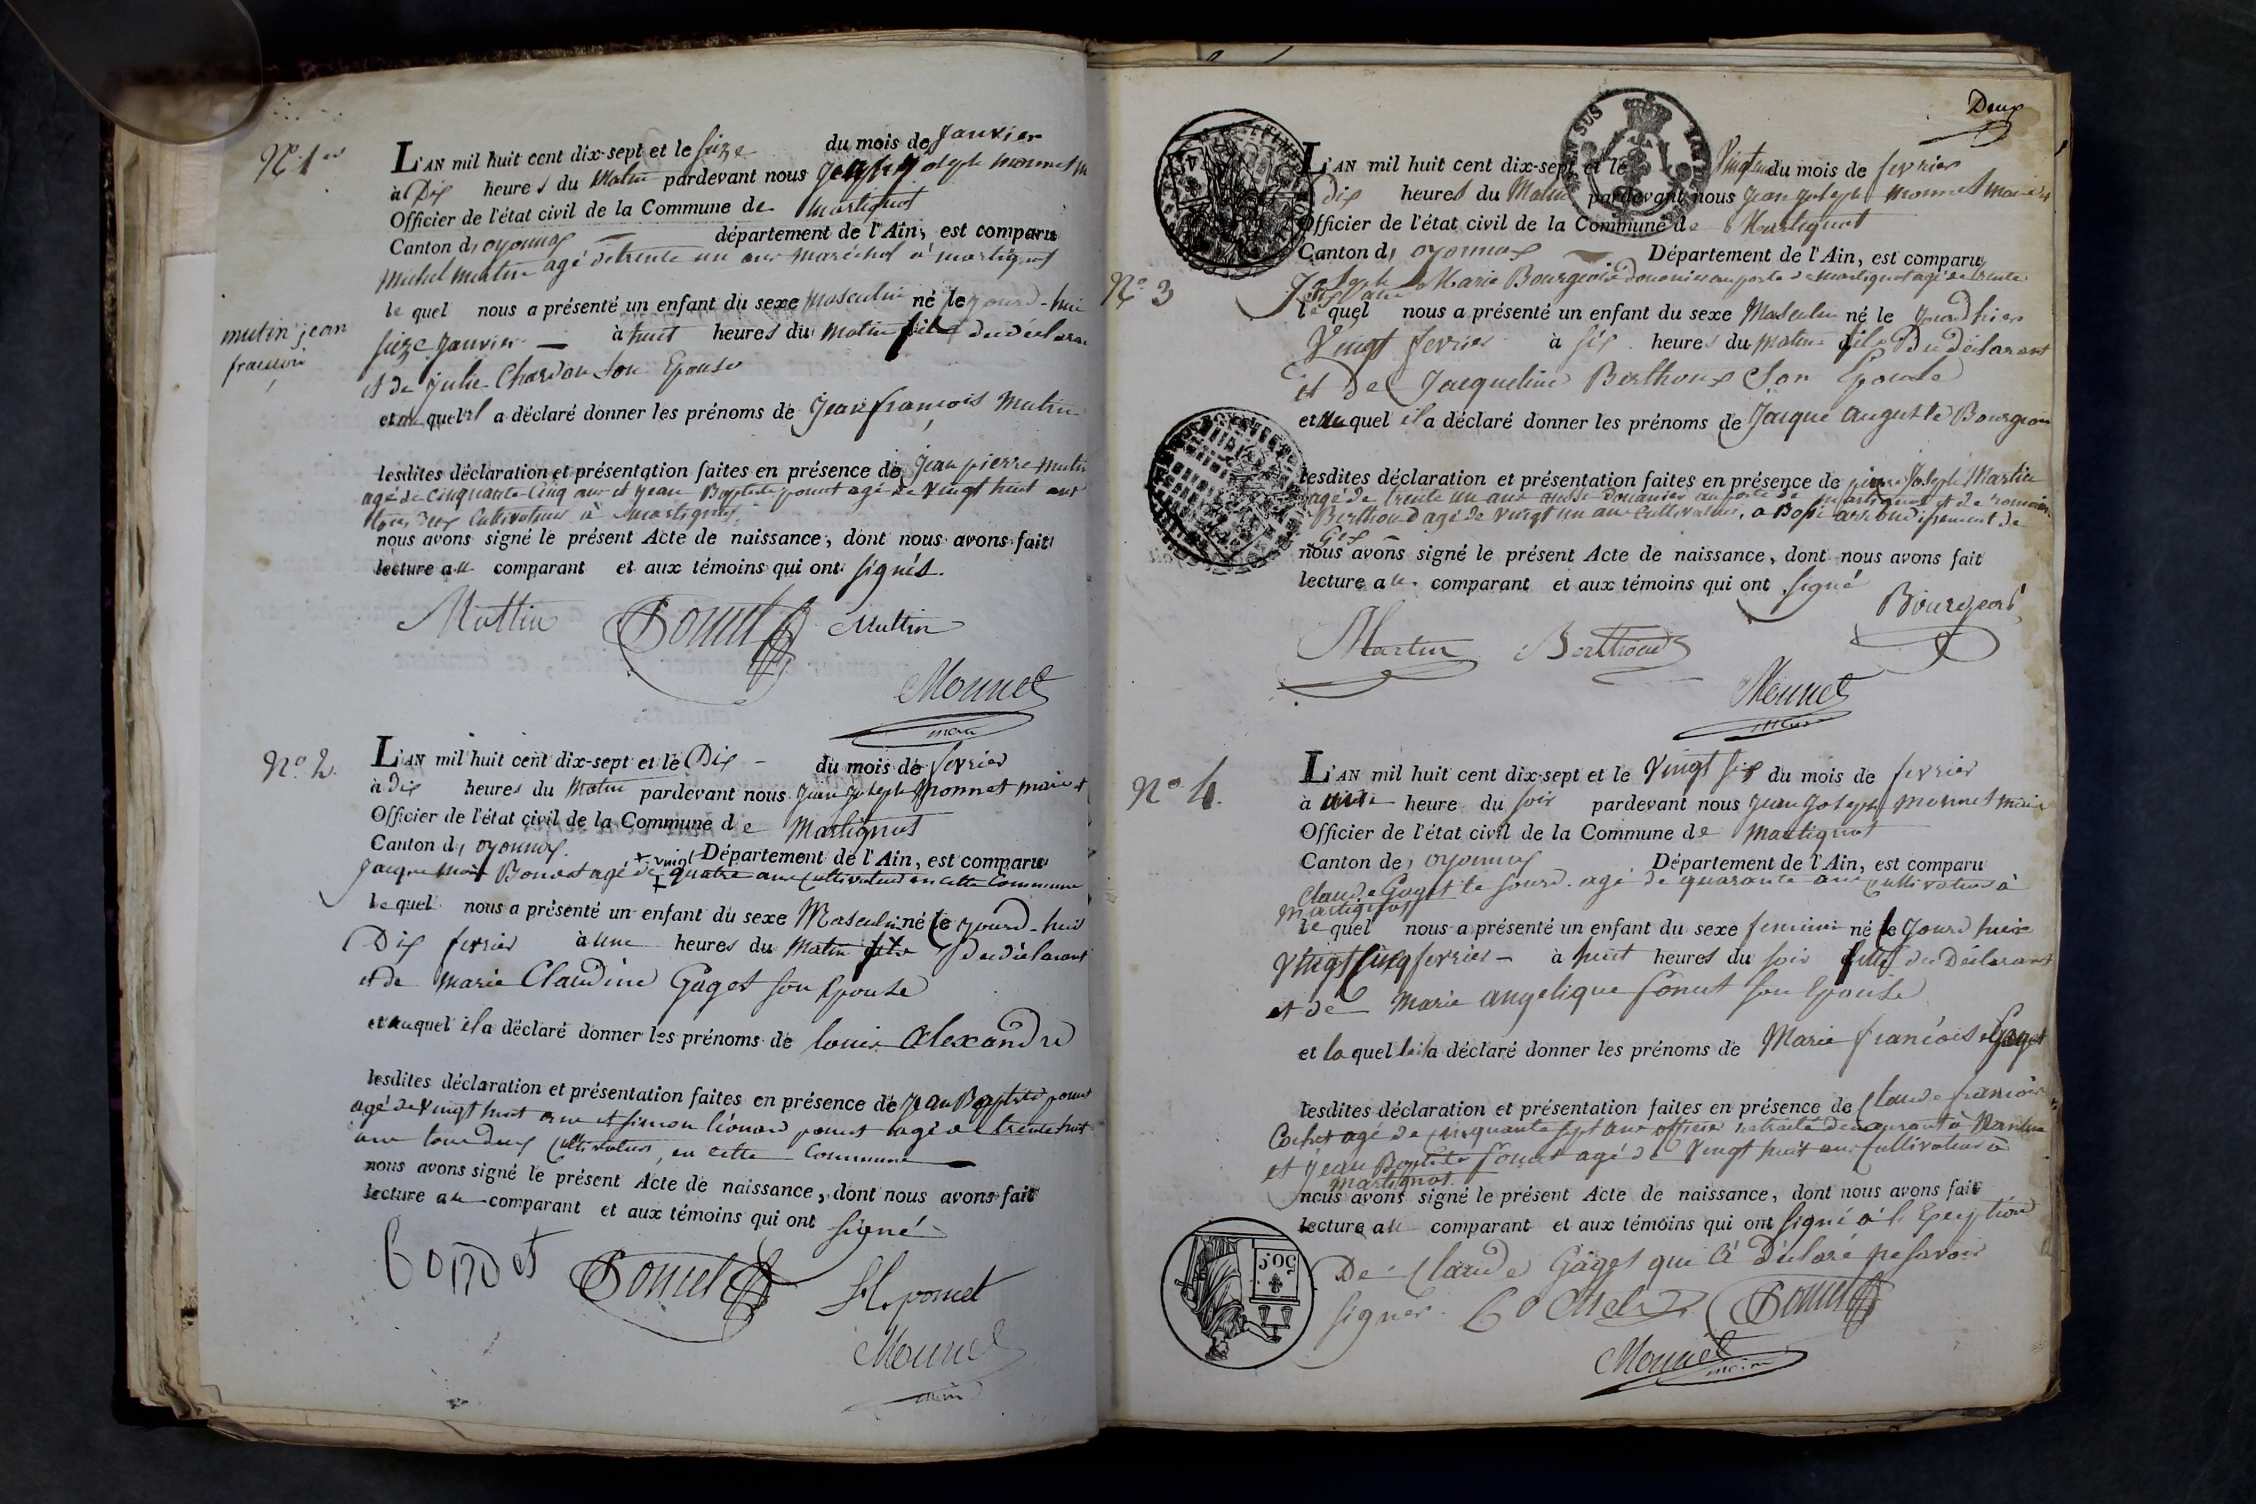 N.º 1er
L'AN mil huit cent dix-sept et le seize du mois de Janvier
à Dix heures du Matin pardevant nous Jean Joseph Monnet m
Officier de l'état civil de la Commune de Martignat
Canton d'oyonnax département de l'Ain, est comparu
Michel Mutin agé de trente un ans maréchal à martignat
le quel nous a présenté un enfant du sexe masculin né le jourd-hui
mutin jean
françois
seize Janvier à huit heures du matin fils du déclara
et de Julie Chardon son Epouse
et au quel il a déclaré donner les prénoms de Jean françois Mutin
lesdites déclaration et présentation faites en présence de Jean pierre Mutin
agé de cinquante cinq ans et jean Baptiste ponet agé de vingt huit ans
tous deux Cultivateurs à Martignat
nous avons signé le présent Acte de naissance, dont nous avons fait
lecture au comparant et aux témoins qui ont signés.
Muttin Ponet Muttin
Monnet
maire
N.º 2.
L'AN mil huit cent dix-sept et le Dix du mois de fevrier
à dix heures du Matin pardevant nous Jean Joseph Monnet maire et
Officier de l'état civil de la Commune de Martignat
Canton d'oyonnax. Département de l'Ain, est comparu
Jacque Marie Bondet agé de vingt quatre ans Cultivateur en cette Commune
le quel nous a présenté un enfant du sexe Masculin né le jourd-hui
Dix fevrier à une heures du Matin fils du déclarant
et de Marie Claudine Gaget son Epouse
et auquel il a déclaré donner les prénoms de louis Alexandre
lesdites déclaration et présentation faites en présence de Jean Baptiste ponet
agé de vingt huit ans et simon léonard ponet agé de trente huit
ans tous deux Cultivateurs, en cette Commune
nous avons signé le présent Acte de naissance, dont nous avons fait
lecture au comparant et aux témoins qui ont signé
Bondet Ponet S.L. ponet
Monnet
maire
Deux
L'AN mil huit cent dix-sept et le Vingt un du mois de fevrier
Dix heures du Matin pardevant nous Jean Joseph Monnet maire et
Officier de l'état civil de la Commune de Martignat
Canton d'oyonnax Département de l'Ain, est comparu
N.º 3
Joseph Marie Bourgeois douanier au poste de martignat agé de trente
six ans
le quel nous a présenté un enfant du sexe Masculin né le jourd hier
Vingt fevrier à six heures du matin fils Du déclarant
et De Jacqueline Berthoux Son Epouse
et au quel il a déclaré donner les prénoms de Jacque Auguste Bourgeois
lesdites déclaration et présentation faites en présence de pierre Joseph Martin
agé de trente un ans aussi douanier au poste de martignat et de romain
Berthoud agé de vingt un ans Cultivateur, arrondissement de
Gex
nous avons signé le présent Acte de naissance, dont nous avons fait
lecture au comparant et aux témoins qui ont signé
Bourgeois
Martin Berthoud
Monnet
Maire
N.º 4.
L'AN mil huit cent dix-sept et le Vingt six du mois de fevrier
à une heure du soir pardevant nous Jean Joseph Monnet maire
Officier de l'état civil de la Commune de Martignat
Canton de, oyonnax Département de l'Ain, est comparu
Claude Gaget le sourd agé de quarante ans Cultivateur à
Martignat
le quel nous a présenté un enfant du sexe feminin né le jourd hiere
vingt Cinq fevrier à huit heures du soir fille du Déclarant
et de Marie angelique Ponet son Epouse
et la quelle il a déclaré donner les prénoms de Marie françoise Gaget
lesdites déclaration et présentation faites en présence de Claude françois
Cochet agé de cinquante sept ans officier retraité demeurant à Nantua
et jean Baptiste Ponet agé de Vingt huit ans Cultivateur à
Martignat.
nous avons signé le présent Acte de naissance, dont nous avons fait
lecture au comparant et aux témoins qui ont signé à l'Exception
De Claude Gaget qui à Déclaré ne savoir
signer. Cochet Ponet
Monnet
maire
50 C.